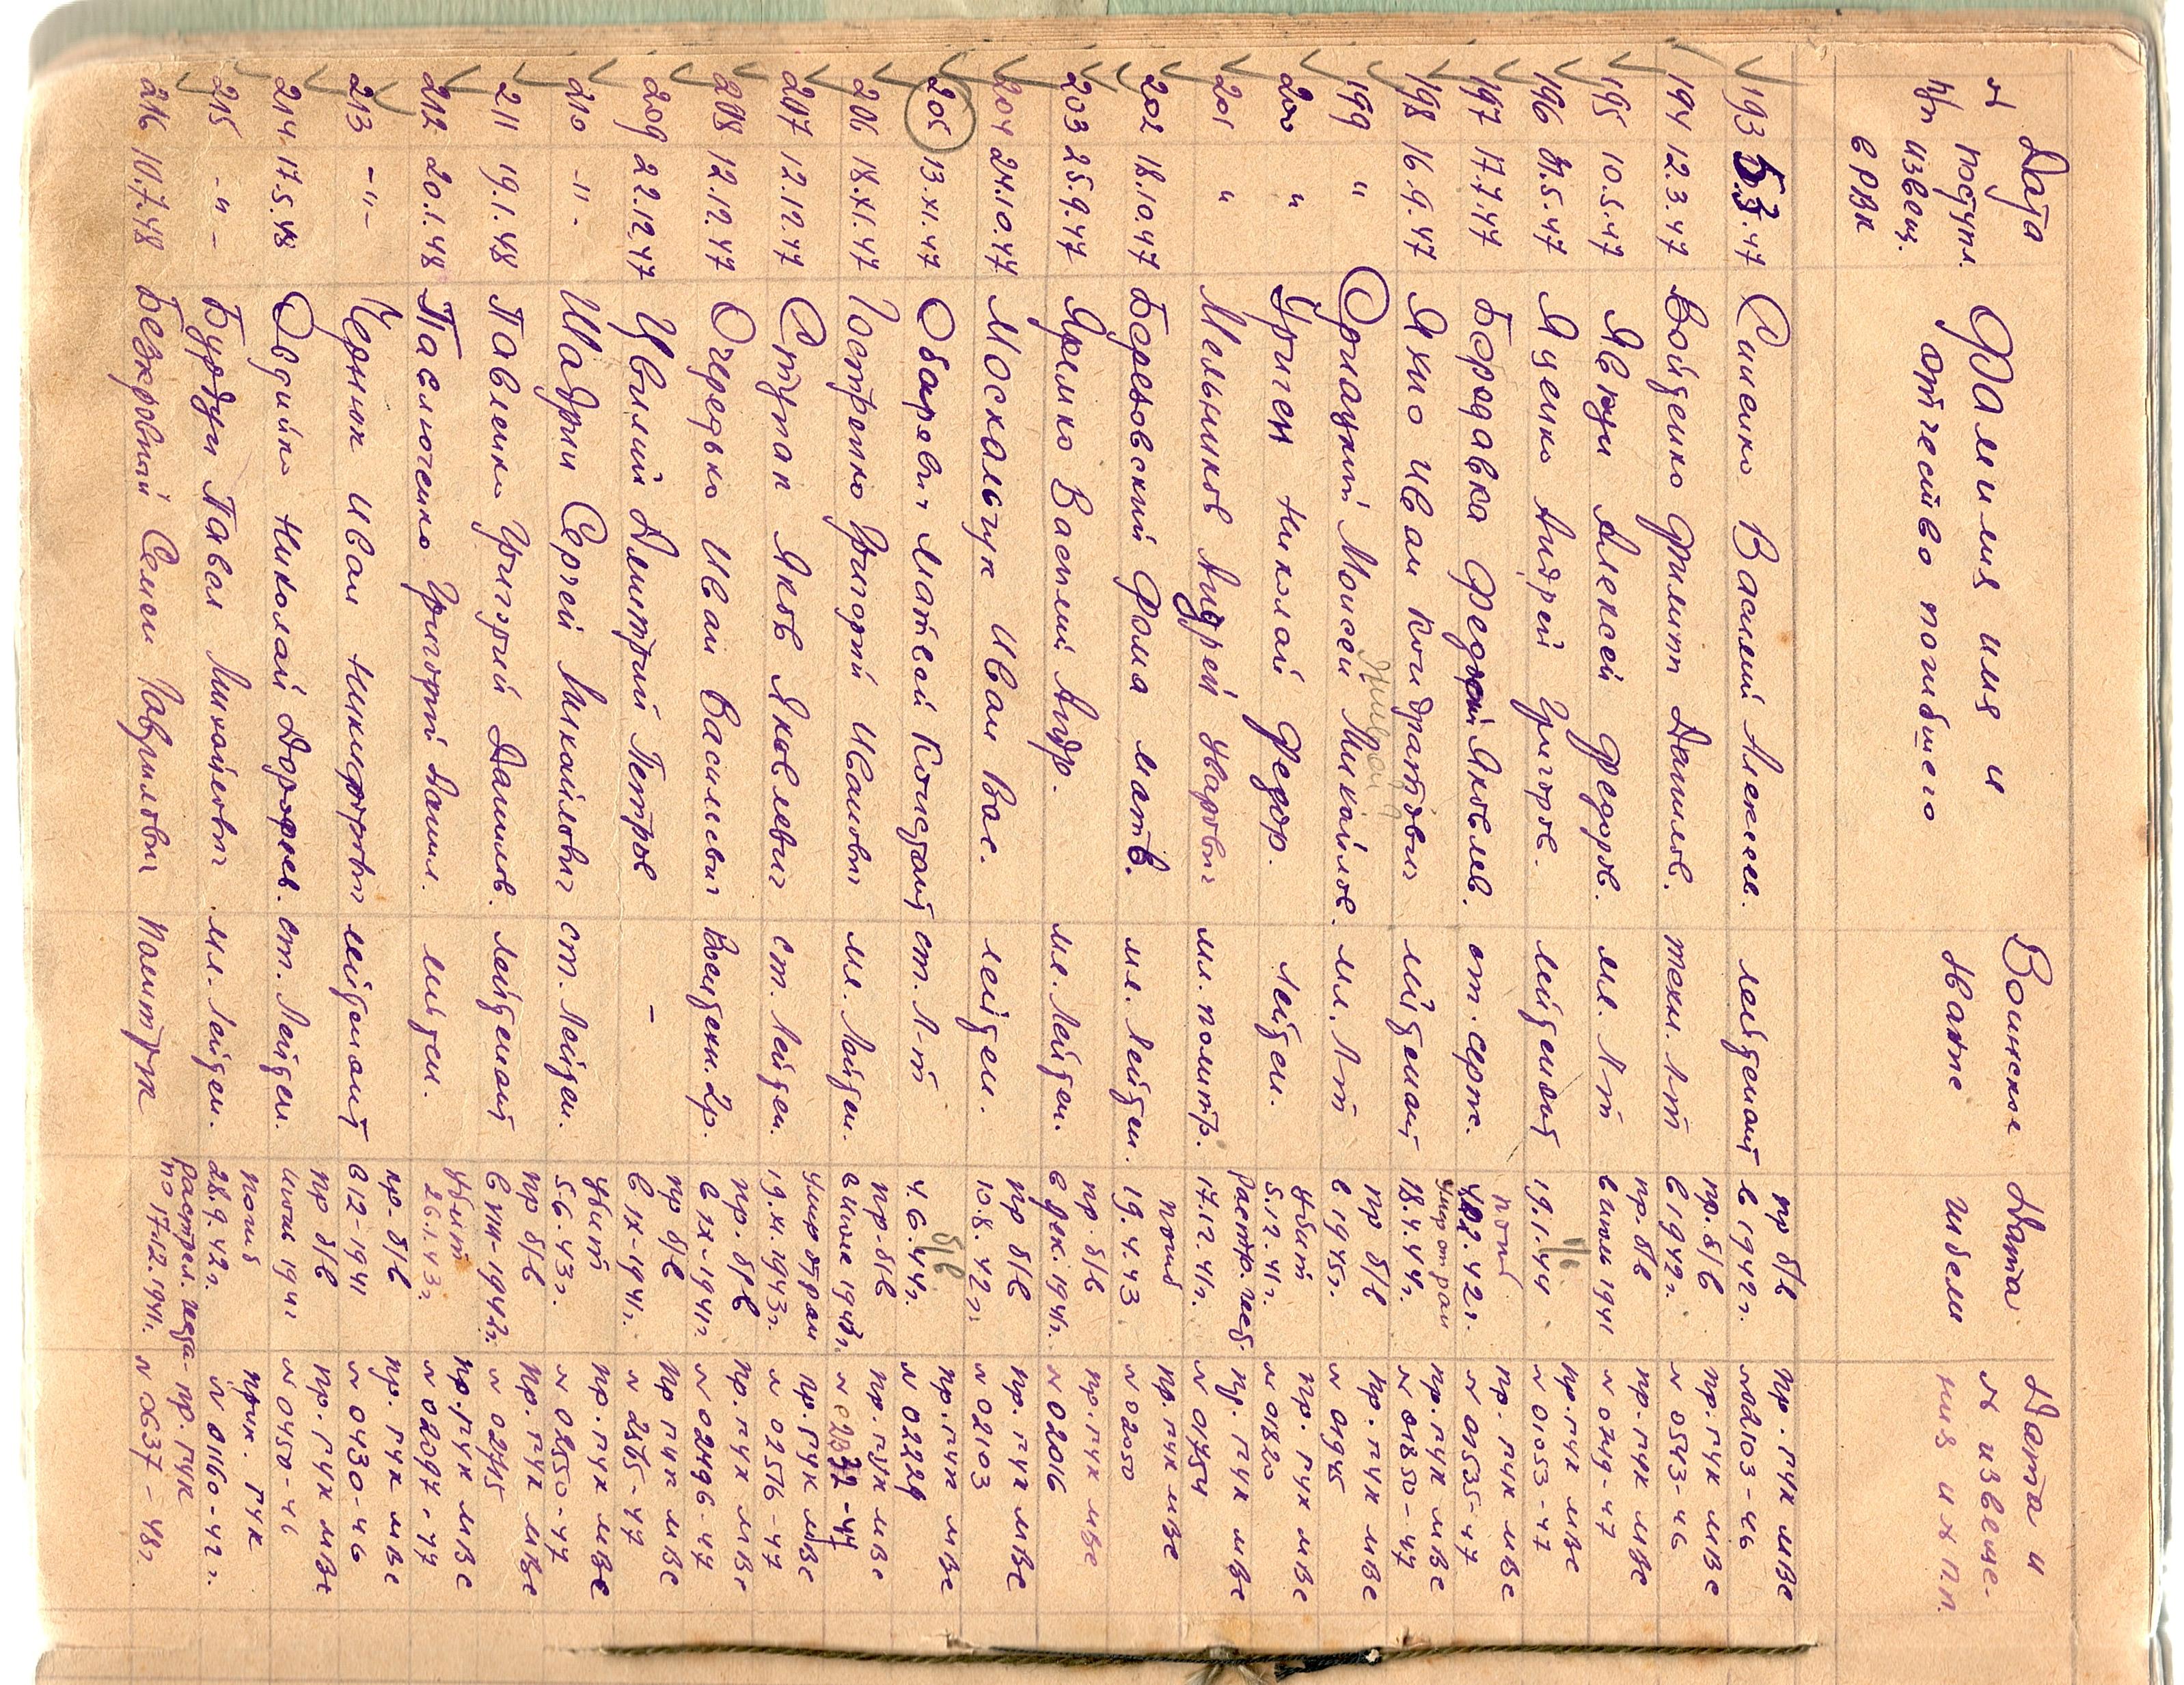 № п/п Дата поступл. извещ. в РВК Фамилия имя и отчество погибшего Воинское звание Дата гибели Дата и № извещения и их п.п.
193 5.3.47 Синенко Василий Алексеев. лейтенант пр б/в в 1942 г. пр. ГУК МВС № 02103-46
194 12.3.47 Войценко Филипп Данилов. техн. л-т пр. б/в в 1942 г. пр. ГУК МВС № 0543-46
195 10.5.47 Алексей Федоров. мл. л-т пр. б/в в июле 1941 пр. ГУК МВС № 0749-47
196 9.5.47 Яценко Андрей Григоров. лейтенант 19.1.44 пр. ГУК МВС № 01053-47
197 17.7.47 Бородавка Федор Яковлев. ст. серж. погиб 2.42 г. пр. ГУК МВС № 01535-47
198 16.9.47 Яхно Иван Кондратович лейтенант умер от ран 18.4.44 г. пр. ГУК МВС № 01850-47
199 " Моисей Михайлов. мл. л-т пр б/в в 1945 г. пр. ГУК МВС № 01945
200 " Николай Федор. лейтен. убит 5.12.41 г. пр. ГУК МВС № 01820
201 " Мельников Андрей Уварович мл. политр. 17.12.41 г. пр. ГУК МВС № 01754
202 18.10.47 Березовский Фома Матв. мл. лейтен. погиб 19.4.43 пр. ГУК МВС № 02050
203 25.9.47 Яремко Василий Андр. мл. лейтен. пр. б/в в дек. 1941 г. пр. ГУК МВС № 02016
204 24.10.47 Москальчук Иван Вас. лейтен. пр б/в 10.8.42 г. пр. ГУК МВС № 02103
205 13.XI.47 Матвей Констант. ст. л-т б/в 4.6.44 г. пр. ГУК МВС № 02229
206 18.XI.47 Гостренко Григорий Иванович мл. лейтен. пр. б/в в июле пр. ГУК МВС № 02372-44
207 12.12.47 Ступак Яков Яковлевич ст. лейтен. умер от ран 1943 г. пр. ГУК МВС № 02576-47
208 12.12.47 Очередько Иван Васильевич Воентехн. 2 р. пр. б/в в IX-1941 г. пр. ГУК МВС № 02496-47
209 22.12.47 Цвилий Дмитрий Петров - пр б/в в IX-1941 г. пр ГУК МВС № 2565-47
210 -"- Шадрин Сергей Михайлович ст. лейтен. убит 5.6.43 г. пр. ГУК МВС № 02550-47
211 19.1.48 Павленко Григорий Данилов. лейтенант пр б/в в VIII-1942 г. пр. ГУК МВС № 02715
212 20.1.48 Григорий Данил. лейтен. убит 26.1.43 г. пр. ГУК МВС № 02097-47
213 -"- Черник Иван Никифорович лейтенант пр. б/в в 12-1941 пр. ГУК МВС № 0430-46
214 17.5.48 Николай Дорофеев. ст. лейтен. пр б/в июль 1941 пр. ГУК МВС № 0450-46
215 -"- Павел Михайлович мл. лейтен. погиб 28.9.42 г. прик. ГУК № 01160-42 г.
216 10.7.48 Безкровный Семен Гаврилович политрук 17.12.1941 г. пр. ГУК № 0637-48 г.